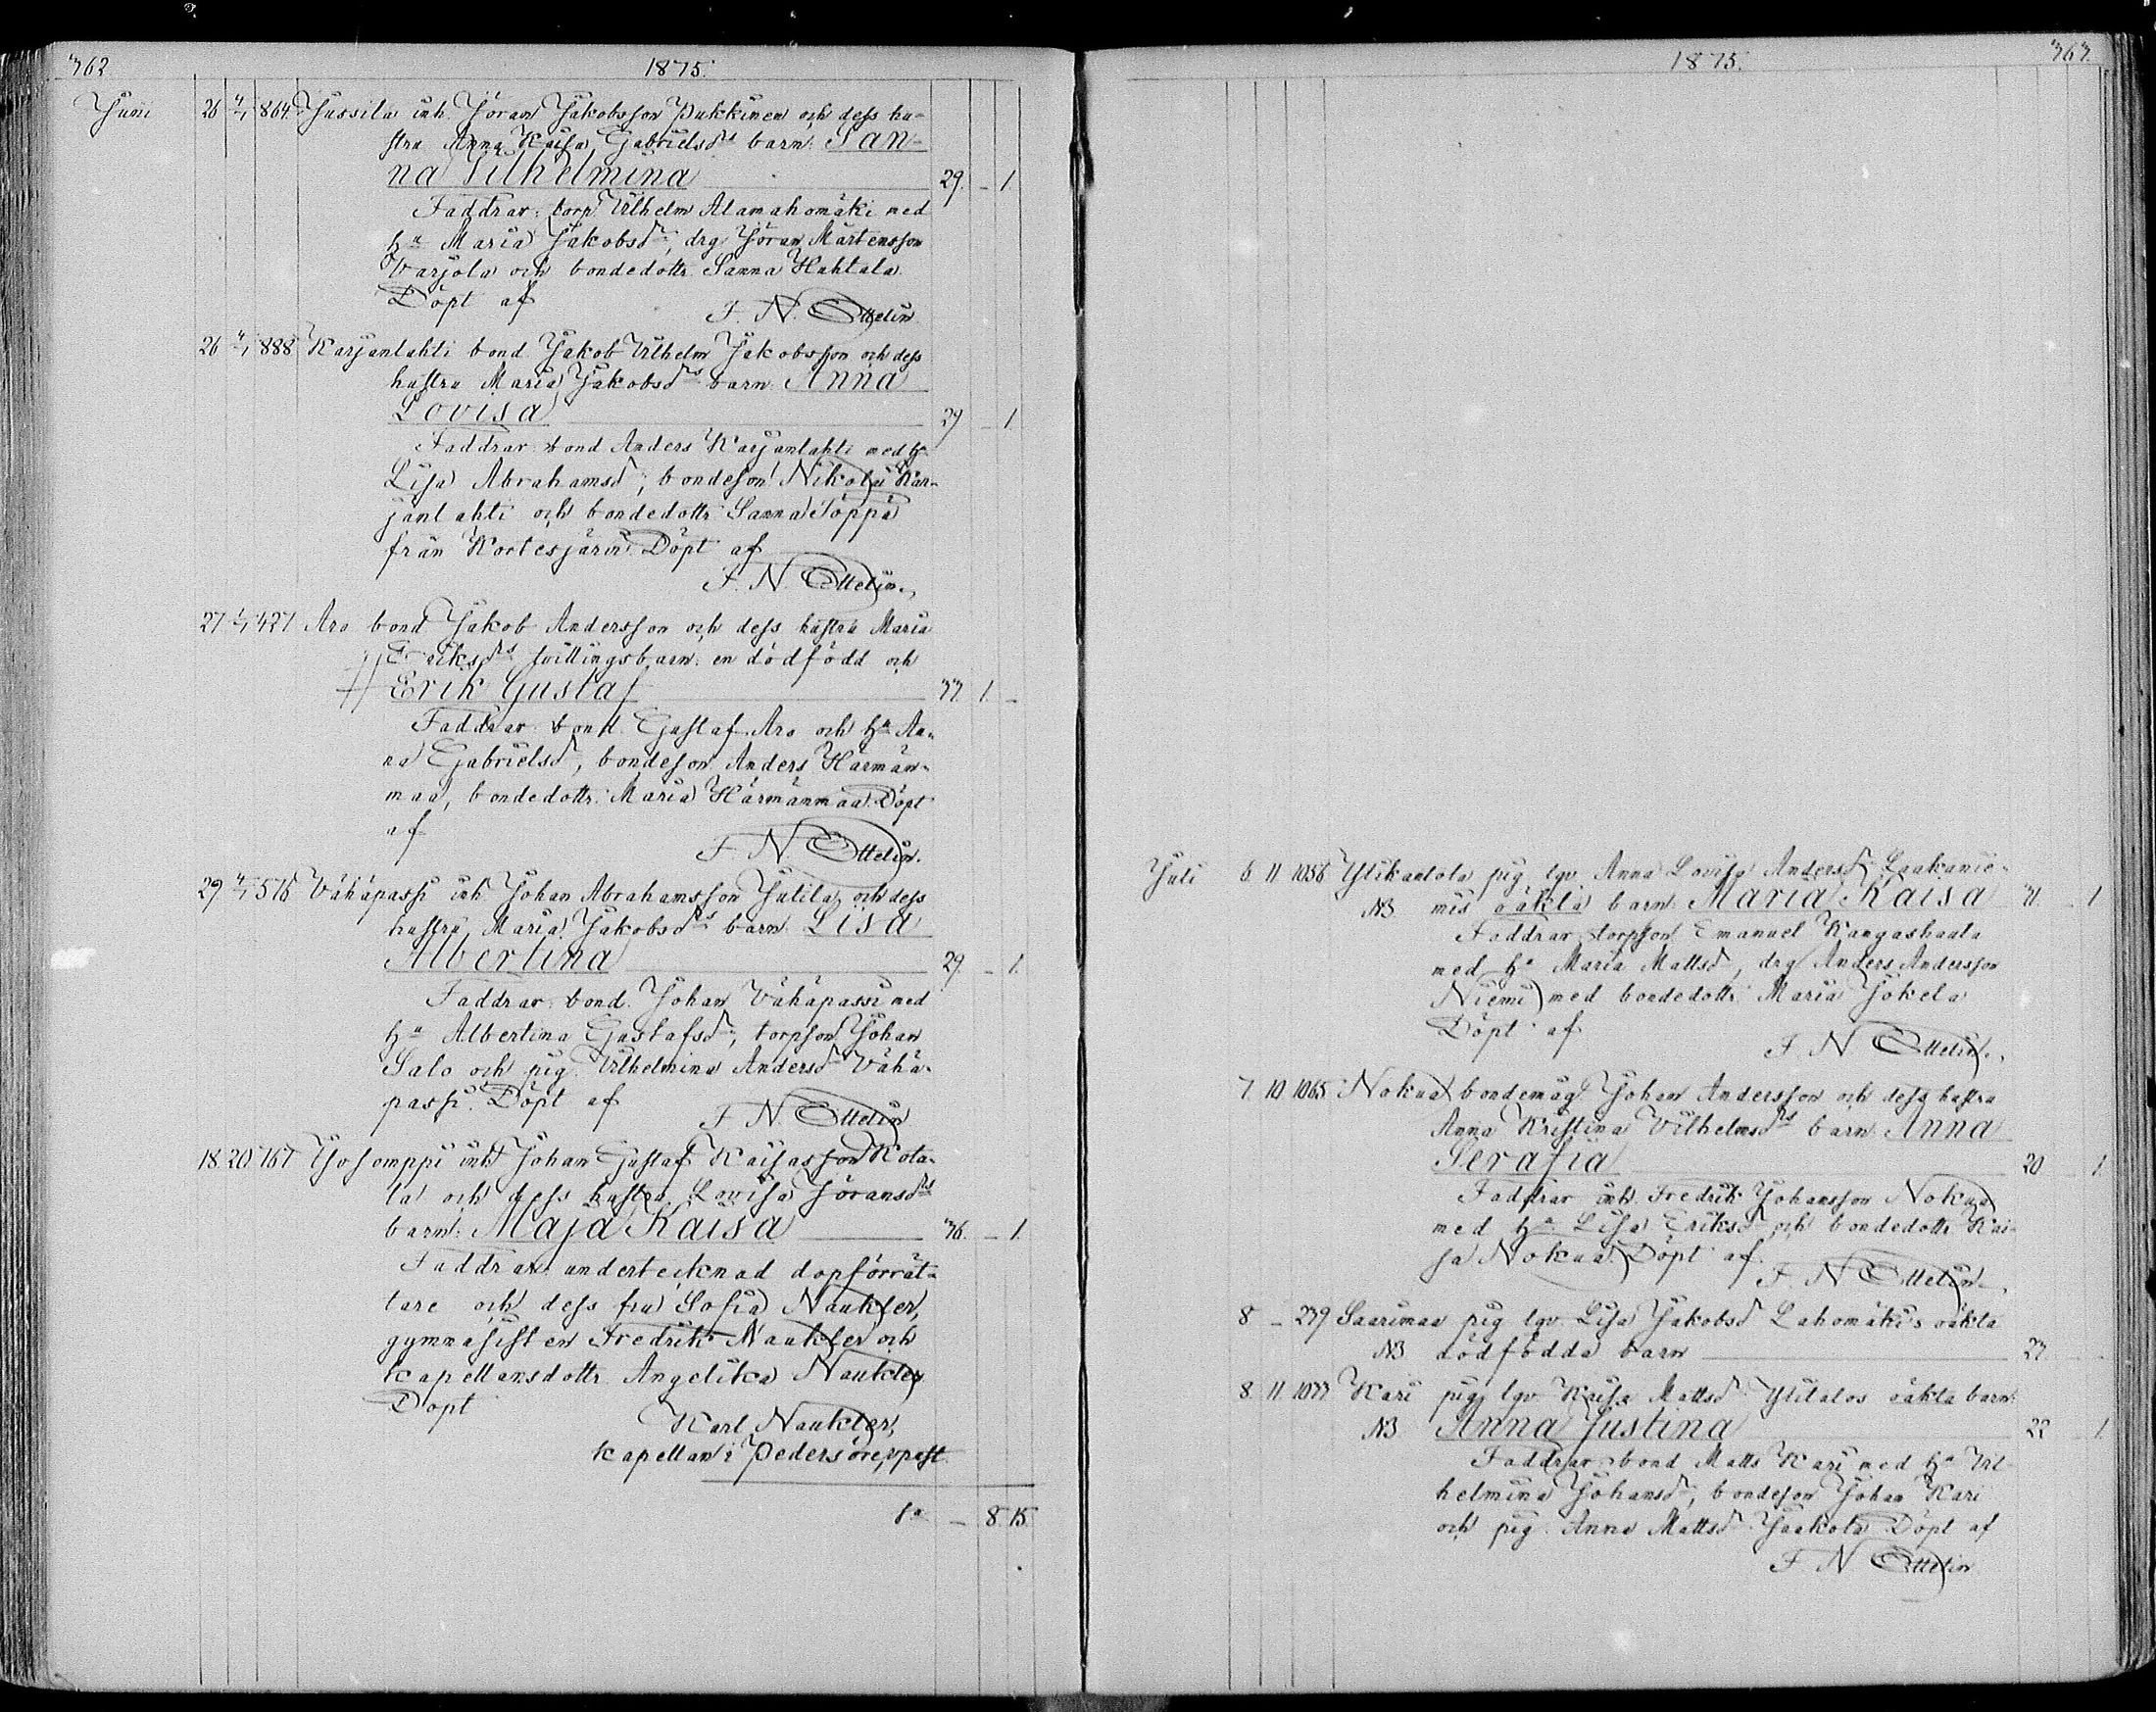 362 1875.
Juni 26 4/7 864 Jussila inh. Jöran Jakobsson Pukkinen och dess hu-
stru Anna Kaisa Gabrielsdrs barn: San-
na Vilhelmina 29. – 1
Faddrar: torp. Vilhelm Alamahomäki med
hu Maria Jakobsdr, drg Jöran Mårtensson
Varjola och bondedottr. Sanna Huhtala
Döpt af F. N. Ottelin.
26 4/7 888 Karjanlahti bond Jakob Vilhelm Jakobsson och dess
hustru Maria Jakobsdrs barn: Anna
Lovisa 29 – 1.
Faddrar: bond Anders Karjanlahti med hu
Lisa Abrahamsdr; bondeson Nikolai Kar-
janlahti och bondedottr. Sanna Töppä
från Kortesjärvi. Döpt af
F. N. Ottelin.
27 427 Aro bond Jakob Andersson och dess hustru Maria
Eriksdrs tvillingsbarn: en dödfödd och
Erik Gustaf 37. 1. –
Faddrar: bond. Gustaf Aro och hu An-
na Gabrielsdr, bondeson Anders Härmän-
maa, bondedottr. Maria Härmänmaa. Döpt
af F. N. Ottelin.
29 4/7 516 Vähäpassi inh Johan Abrahamsson Jutila och dess
hustru Maria Jakobsdrs barn: Lisa
Albertina 29. – 1.
Faddrar: bond. Johan Vähäpassi med
hu Albertina Gustafsdr, torpson Johan
Salo och pig. Vilhelmina Andersdr Vähä-
passi. Döpt af F. N. Ottelin
18. 20 167 Johan Gustaf Kaisasson Kota-
la och dess hustru Lovisa Göransdrs
barn: Maja Kaisa 36. – 1.
Faddrar: undertecknad dopförrät-
tare och dess fru Sofia Naukler,
gymnasisten Fredrik Naukler och
kapellansdottr Angelika Naukler
Döpt Karl Naukler,
kapellan i Pedersöre past.
Sa – 8. 15.
1875. 363.
Juli 6 11 1058 Ylikantola pig. lgv. Anna Lovisa Andersdr Laakanie-
NB mis oäkta barn: Maria Kaisa 31. 1
Faddrar: torpson Emanuel Kangashaula
med hu Maria Mattsdr, drg. Anders Andersson
Niemi med bondedottr Maria Jokela
Döpt af F. N. Ottelin.
7 10 1065 Nokua bondemåg Johan Andersson och dess hustru
Anna Kristina Vilhelmsdrs barn: Anna
Serafia 20 1.
Faddrar inh. Fredrik Johansson Nokua
med hu Lisa Eriksdr och bondedottr Kai-
sa Nokua. Döpt af
F. N. Ottelin
8 – 239 Saarimaa pig lgv. Lisa Jakobsdr Lahomäkis oäkta
NB dödfödda barn 27
8 11 1077 Kari pig. lgv. Kaisa Mattsdr Ylitalos oäkta barn:
NB Anna Justina 22 1.
Faddrar bond Matts Kari med hu Vil-
helmina Johansdr, bondeson Johan Kari
och pig. Anna Mattsdr Jaakola Döpt af
F. N. Ottelin